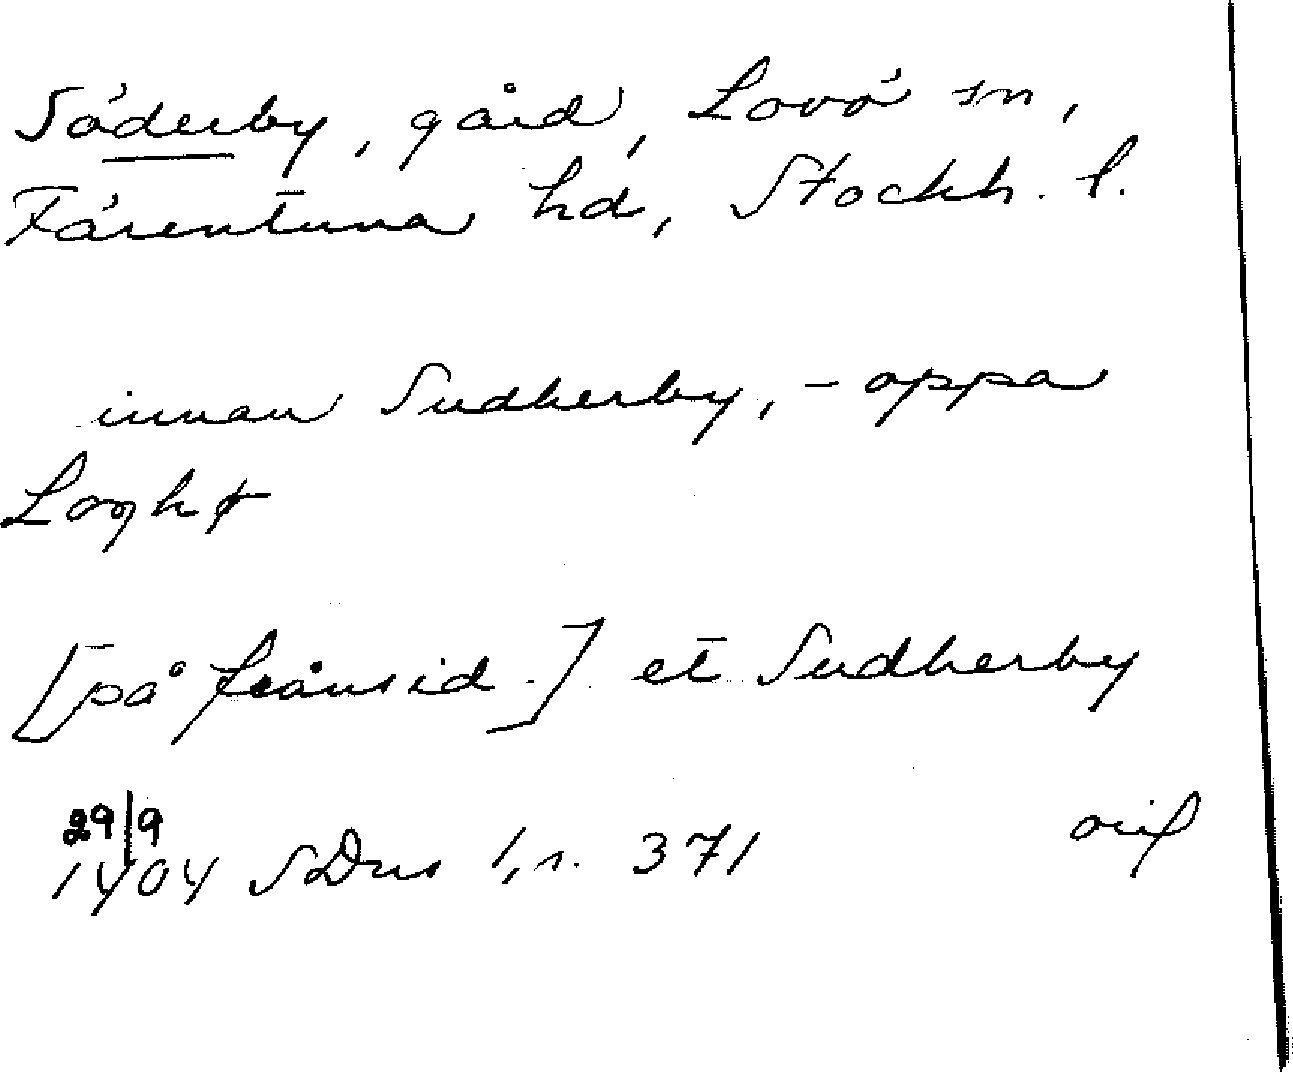 Söderby, gård, Lovö sn,
Färentuna hd, Stockh. l.
innan Sudherby, - oppa
Loghø
[på frånsid.] et Sudherby
29/9
1404 SDns 1, s. 371 orig